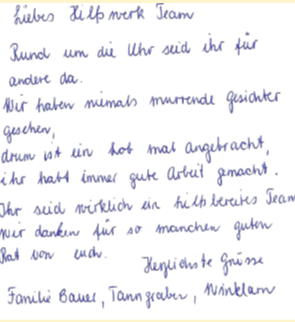 Liebes Hilfswerk Team
Rund um die Uhr seid ihr für
andere da.
Wir haben niemals murrende gesichter
gesehen,
drum ist ein lob mal angebracht,
ihr habt immer gute Arbeit gemacht.
Ihr seid wirklich ein hilfbereites Team
wir danken für so manchen guten
Rat von euch.
Herzlichste Grüsse
Familie Bauer, Tanngraben, Winklarn